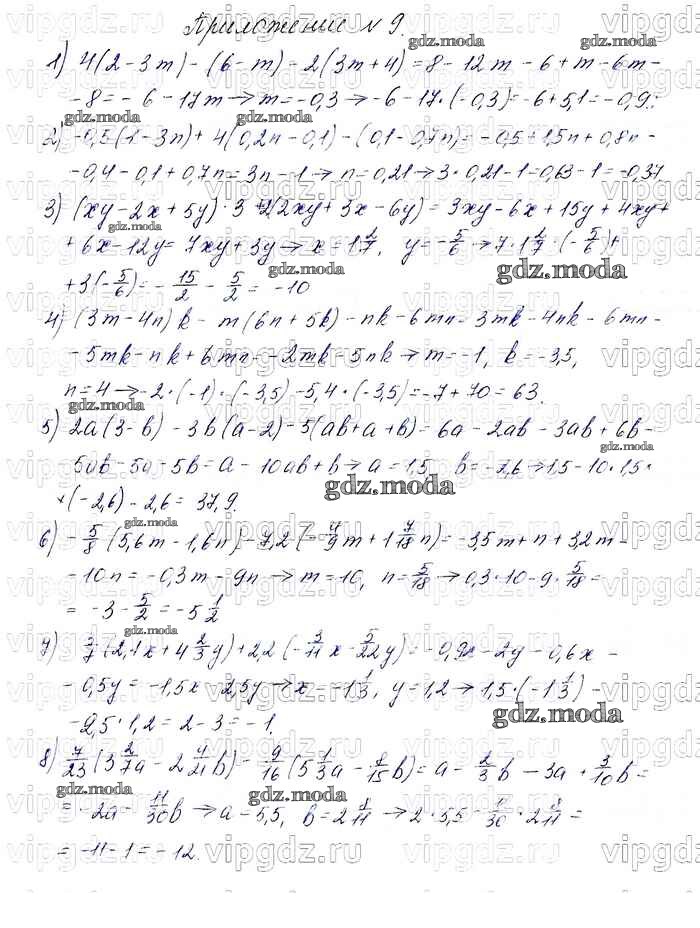 Приложение №9.
1) 4(2-3m)-(6-m)-2(3m+4)=8-12m-6+m-6m-
-8=-6-17m→m=-0,3→-6-17·(-0,3)=-6+5,1=-0,9.
2) -0,5(1-3n)+4(0,2n-0,1)-(0,1-0,7n)=-0,5+1,5n+0,8n-
-0,4-0,1+0,7n=3n-1→n=0,21→3·0,21-1=0,63-1=-0,37
3) (xy-2x+5y)·3+2(2xy+3x-6y)=3xy-6x+15y+4xy+
+6x-12y=7xy+3y→x=1 2/7, y=-5/6→7·1 2/7·(-5/6)+
+3(-5/6)=-15/2-5/2=-10
4) (3m-4n)k-m(6n+5k)-nk-6mn=3mk-4nk-6mn-
-5mk-nk+6mn=-2mk-5nk→m=-1, k=-3,5,
n=4→-2·(-1)·(-3,5)-5,4·(-3,5)=-7+70=63.
5) 2a(3-b)-3b(a-2)-5(ab+a+b)=6a-2ab-3ab+6b-
5ab-5a-5b=a-10ab+b→a=1,5, b=-2,6→1,5-10·1,5·
×(-2,6)-2,6=37,9.
6) -5/8(5,6m-1,6n)-7,2(-4/9m+1 7/18n)=-3,5m+n+3,2m-
-10n=-0,3m-9n→m=10, n=5/18→0,3·10-9·5/18=
=-3-5/2=-5 1/2
7) 3/7(2,1x+4 2/3y)+2,2(-3/11x-5/22y)=-0,9x-2y-0,6x-
-0,5y=-1,5x-2,5y→x=-1 1/3, y=1,2→1,5·(-1 1/3)-
-2,5·1,2=2-3=-1.
8) 7/23(3 2/7a-2 4/21b)-9/16(5 1/3a-8/15b)=a-2/3b-3a+3/10b=
=-2a-11/30b→a=5,5, b=2 8/11→2·5,5-11/30·2 8/11=
=-11-1=-12.
gdz.moda
vipgdz.ru